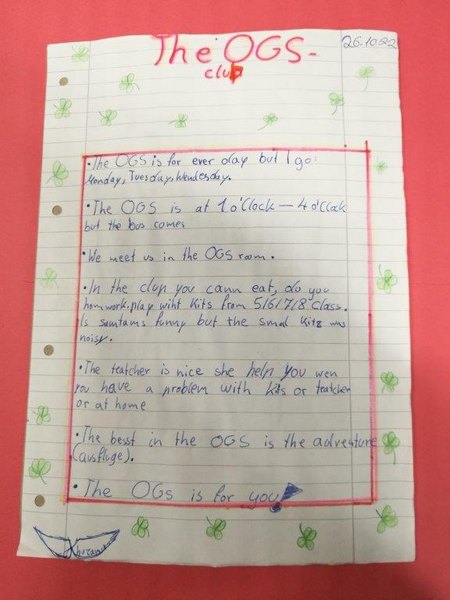 The OGS-
club
26.10.22
• The OGS is for ever day but I go:
Monday, Tuesday, Wendesday.
• The OGS is at 1 o'Clock — 4 o'Clock
but the bus comes
• We meet us in the OGS room.
• In the clup you cann eat, do you
homwork, play wiht Kits from 5/6/7/8 Class.
Is somtams funny but the smal Kitz was
noisy.
• The teatcher is nice she help you wen
you have a problem with kits or teatcher
or at home
• The best in the OGS is the adventure
(ausfluge).
• The OGS is for you!